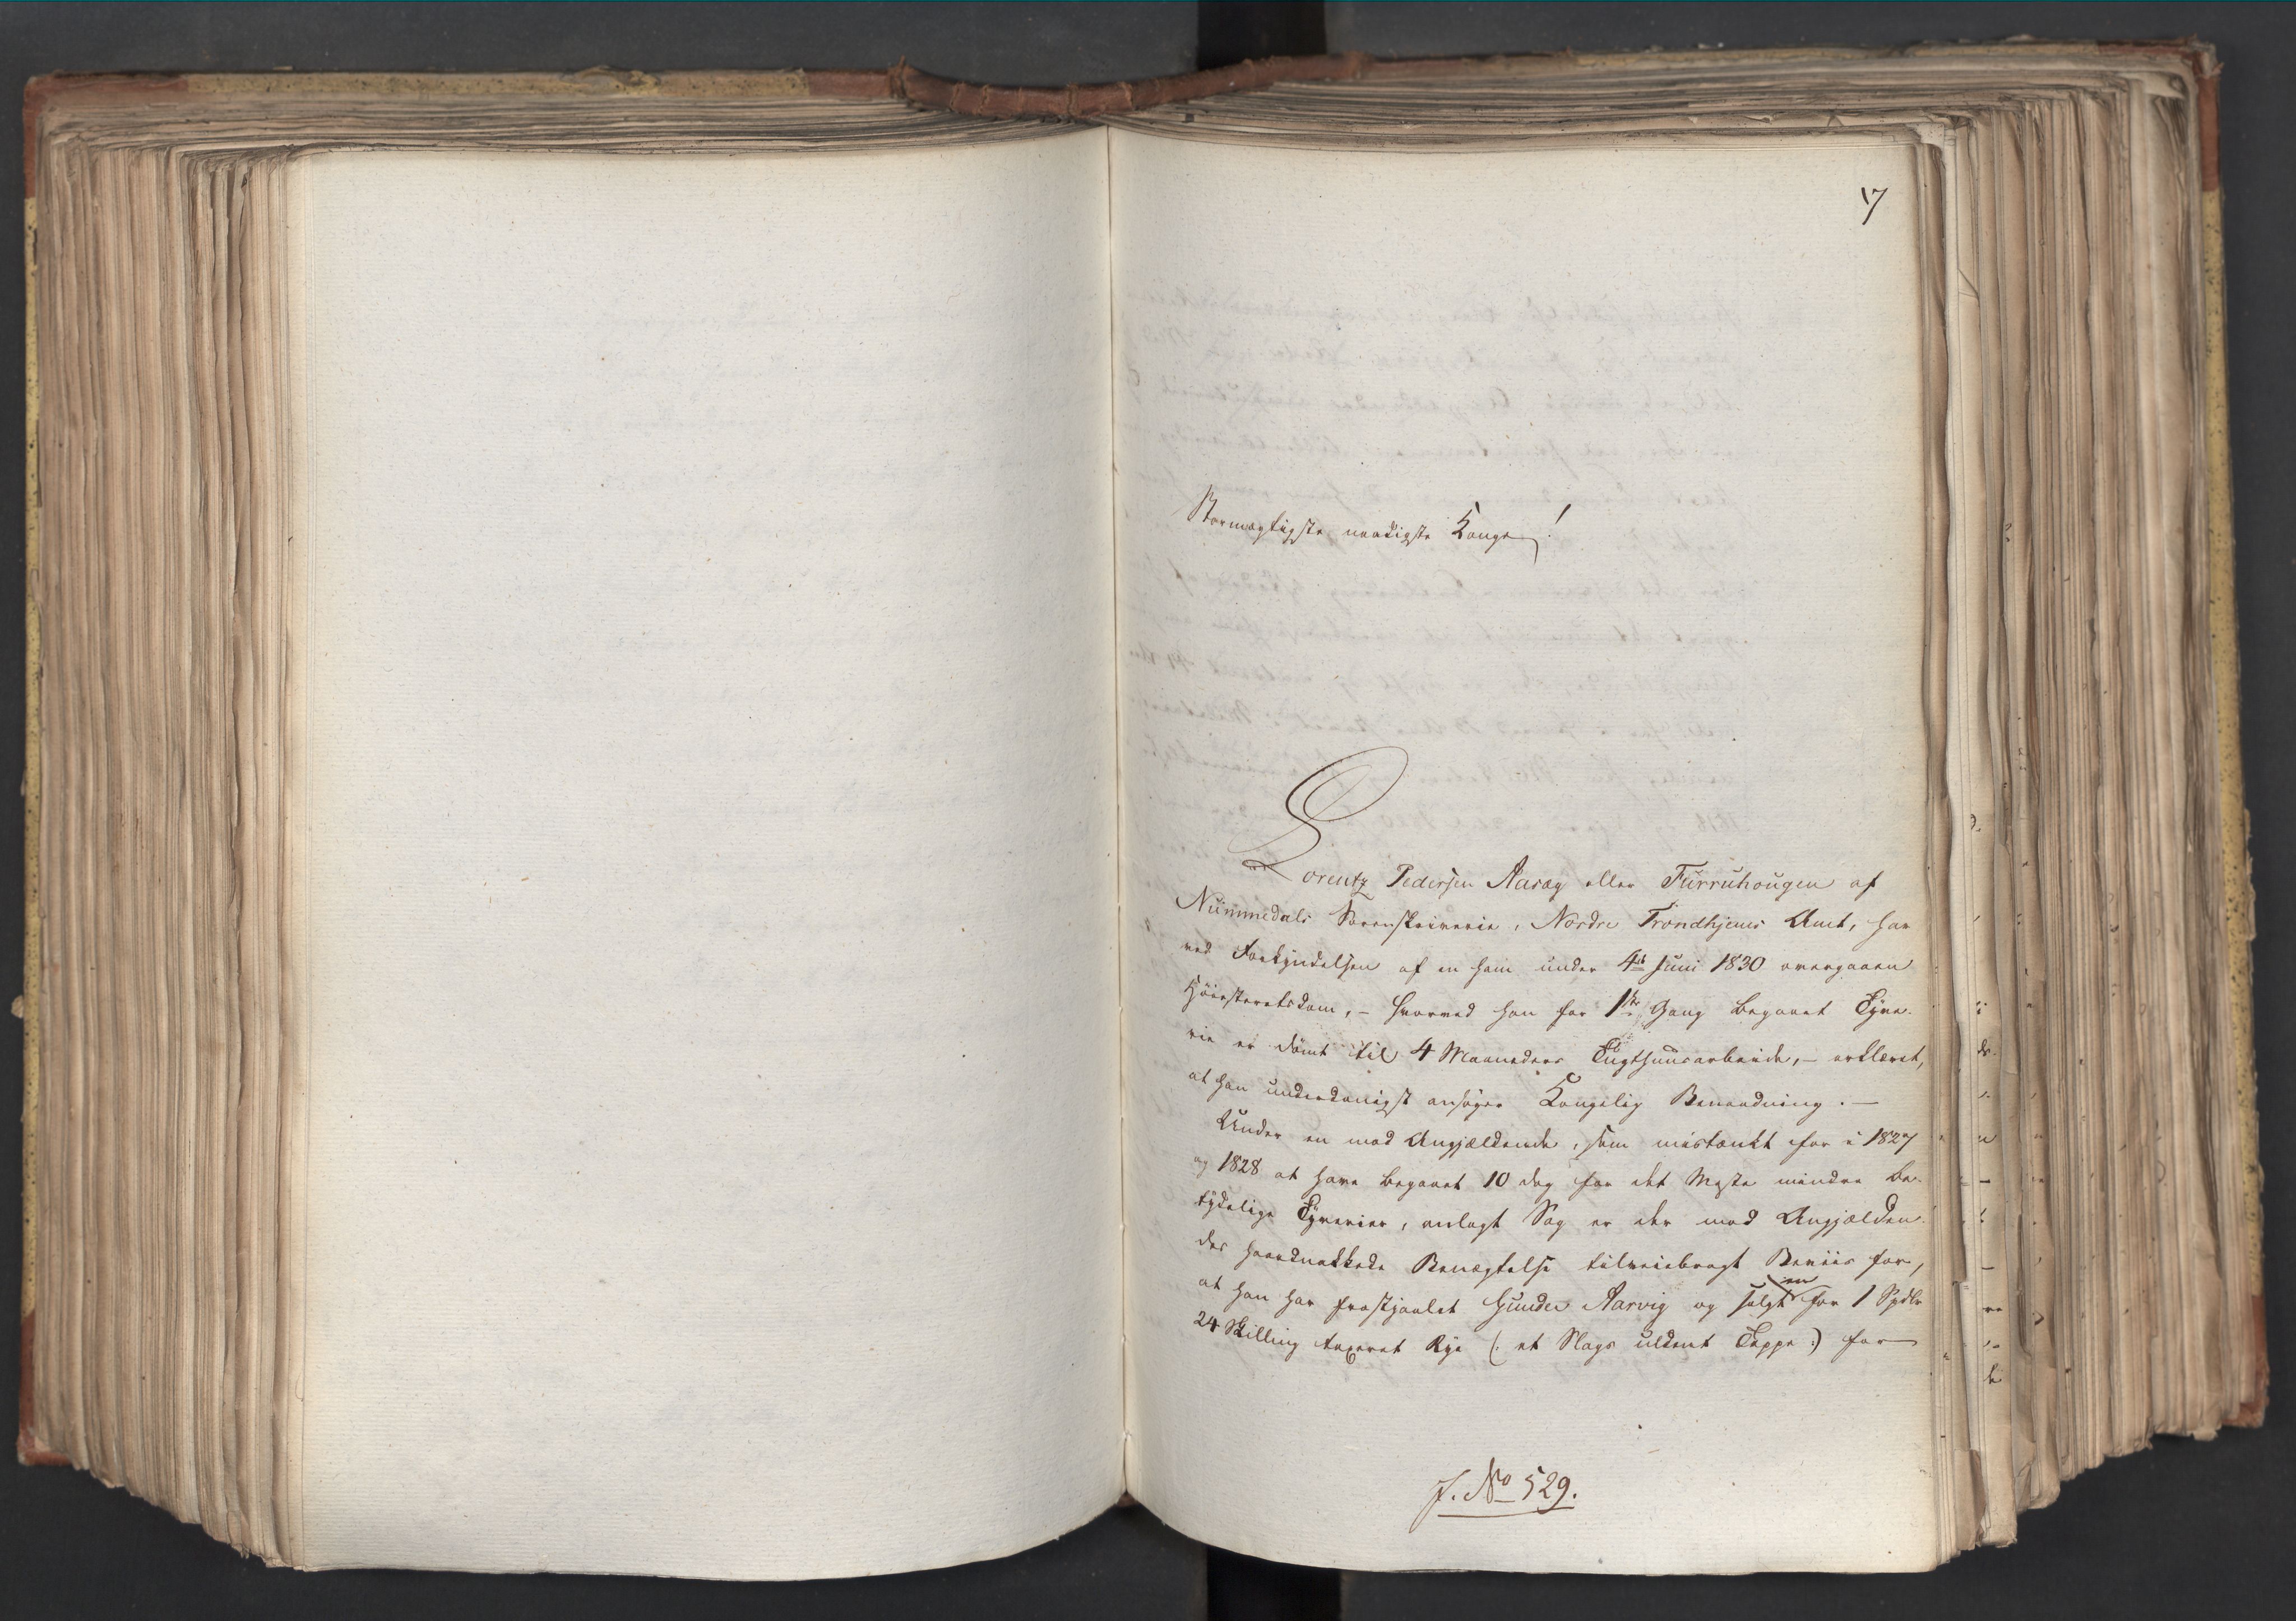 17
Stormægtigste naadigste Konge!
Lorentz Pedersen Aaræg eller Furruhougen af
Nummedals Sorenskriverie, Nordre Trondhjems Amt, har
ved Forkyndelsen af en ham under 4de Juni 1830 overgaaen
Höiesteretsdom, – hvorved han for 1ste Gang begaaet Tyve-
rie er dömt til 4 Maaneders Tugthuusarbeide, – erklæret,
at han underdanigst ansöger Kongelig Benaadning. –
Under en mod Angjældende, som mistænkt for i 1827
og 1828 at have begaaet 10 dog for det Meste mindre be-
tydelige Tyverier, anlagt Sag er der mod Angjælden-
des haardnakkede Benægtelse tilveiebragt Beviis for,
at han har frastjaalet Gunder Aarvig og solgt en for 1 Spdlr
24 Skilling taxeret Rye (: et Slags uldent Teppe :) for
J. No 529.